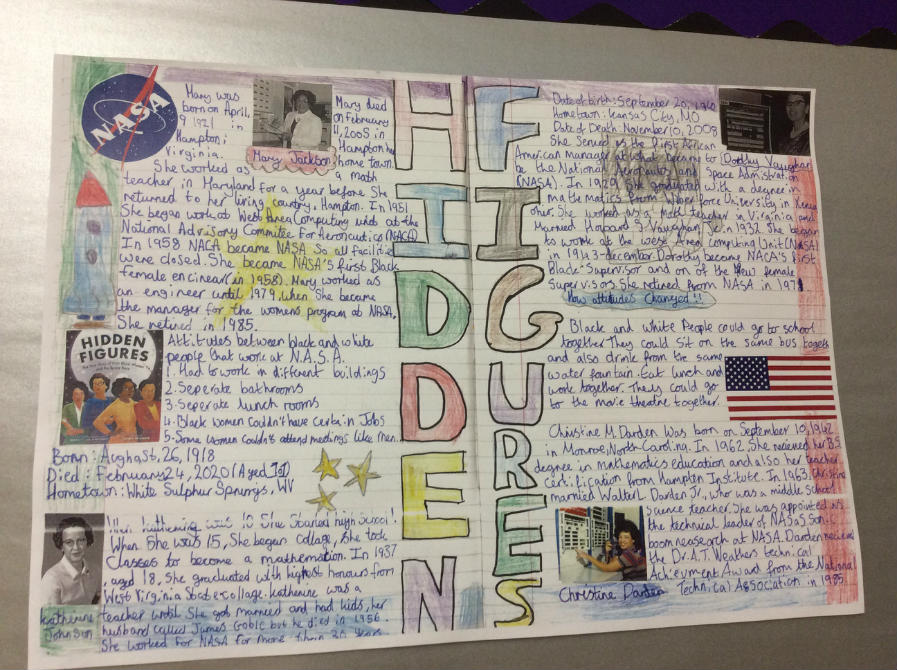 NASA
Mary was
born on April,
9 1921 in
Hampton,
Virginia.
Mary Jackson
Mary died
on February
11, 2005 in
Hampton her
home town.
She worked as a math
teacher in Maryland for a year before She
returned to her living country, Hampton. In 1951
She began work at West Area Computing units at the
National Advisory Commitee For Aeronautics (NACA)
In 1958 NACA became NASA So all facilities
were closed. She became NASA's first Black
female engineer in 1958). Mary worked as
an engineer until 1979, when She became
the manager for the women's program at NASA.
She retired in 1985.
HIDDEN
FIGURES
Attitudes between black and white
people that work at N.A.S.A.
1. Had to work in different buildings
2. Seperate bathrooms
3. Seperate lunch rooms
4. Black women couldn't have certain Jobs
5. Some women couldn't attend meetings like men.
Born: 26, 1918
Died: February 24, 2020 (Aged 101)
Hometown: White Sulphur Springs, WV
When was 10 She Started high School!
When She was 15, She began collage, She took
Classes to become a In 1937
, aged 18, She graduated with highest honours from
West Virginia State collage. Katherine was a
teacher until She got married and had kids, her
husband called James Goble but he died in 1956.
She worked For NASA for more than 30 years
Katherine
Johnson
HIDDEN
FIGURES
Date of birth: September 20, 1910
Hometown: Kansas City, MO
Date of Death November 10, 2008
She Served as the First African
American manager at what became to
be the National Aeronautics and Space
(NASA). In 1929 She graduated with a degree in
mathematics From Wilberforce University in Xenia
She worked as a Math teacher in Virginia and
Married Howard S. Vaughan, Jr. in 1932. She began
to work at the west Area computing Unit (NASA)
in 1943-december. Dorothy became NACA's first
Black Supervisor and on of the few female
Supervisors. She retired from NASA in 1971
Dorothy Vaughan
How attitudes Changed!!
Black and white People could go to school
together They could Sit on the same bus
and also drink from the same
water fountain. Eat lunch and
work together. They could go
to the movie theatre together.
Christine M. Darden was born on September 10, 1942
in Monroe, North Carolina. In 1962, She recieved her B.S
degree in mathematics education and also her teacher
certification from Hampton Institute. In 1963, Christine
married Walter L Darden Jr, who was a middle School
Science teacher. She was appointed as
the technical leader of NASA's Sonic
boom at NASA. Darden recieved
the Dr. A.T. Weathers technical
Achievment Award from the National
Technical Association in 1985
Christine Darden